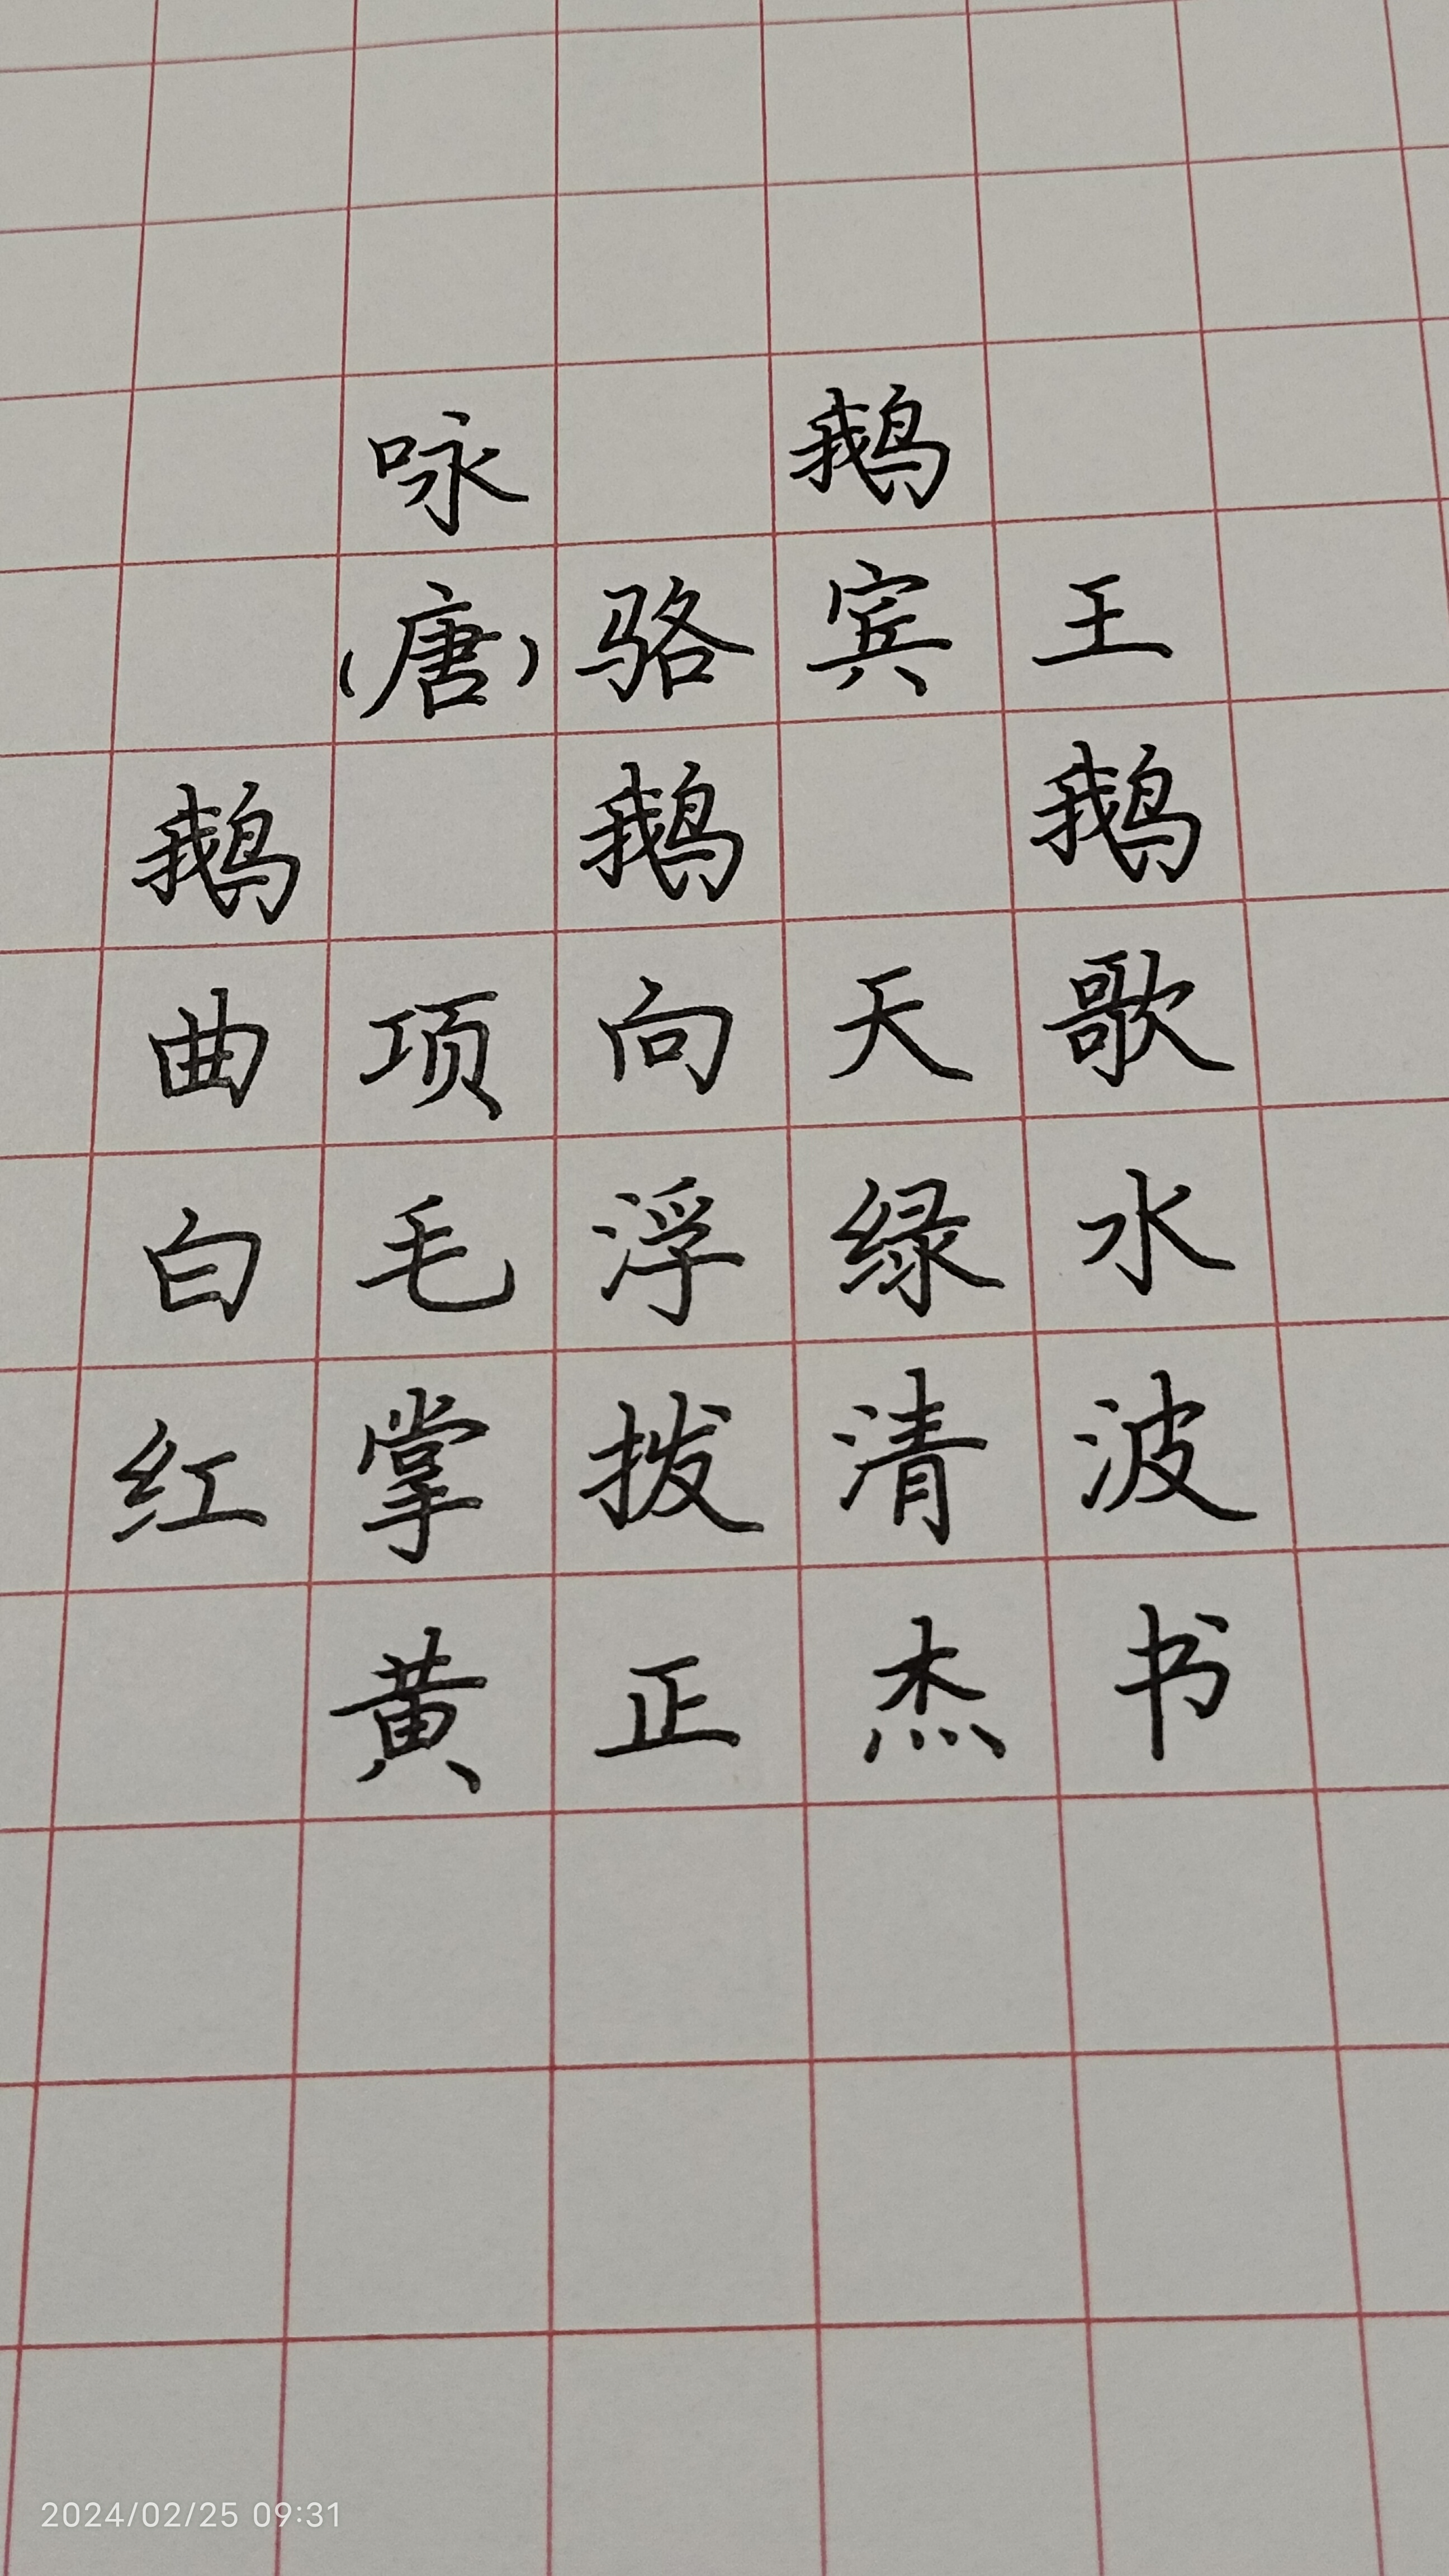 咏 鹅
(唐)骆宾王
鹅 鹅 鹅
曲项向天歌
白毛浮绿水
红掌拨清波
黄正杰书
2024/02/25 09:31